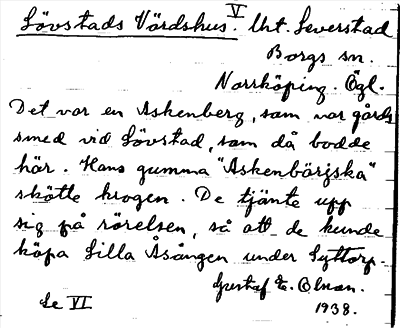 Lövstads Värdshus. V Utt. Leverstad
Borgs sn.
Norrköping. Ögl.
Det var en Askenberg, som var gårds
smed vid Lövstad, som då bodde
här. Hans gumma "Askenbärjska"
skötte krogen. De tjänte upp
sig på rörelsen, så att de kunde
köpa Lilla Åsången under Lyttorp.
Gustaf E. Olnan.
1938.
Se VI